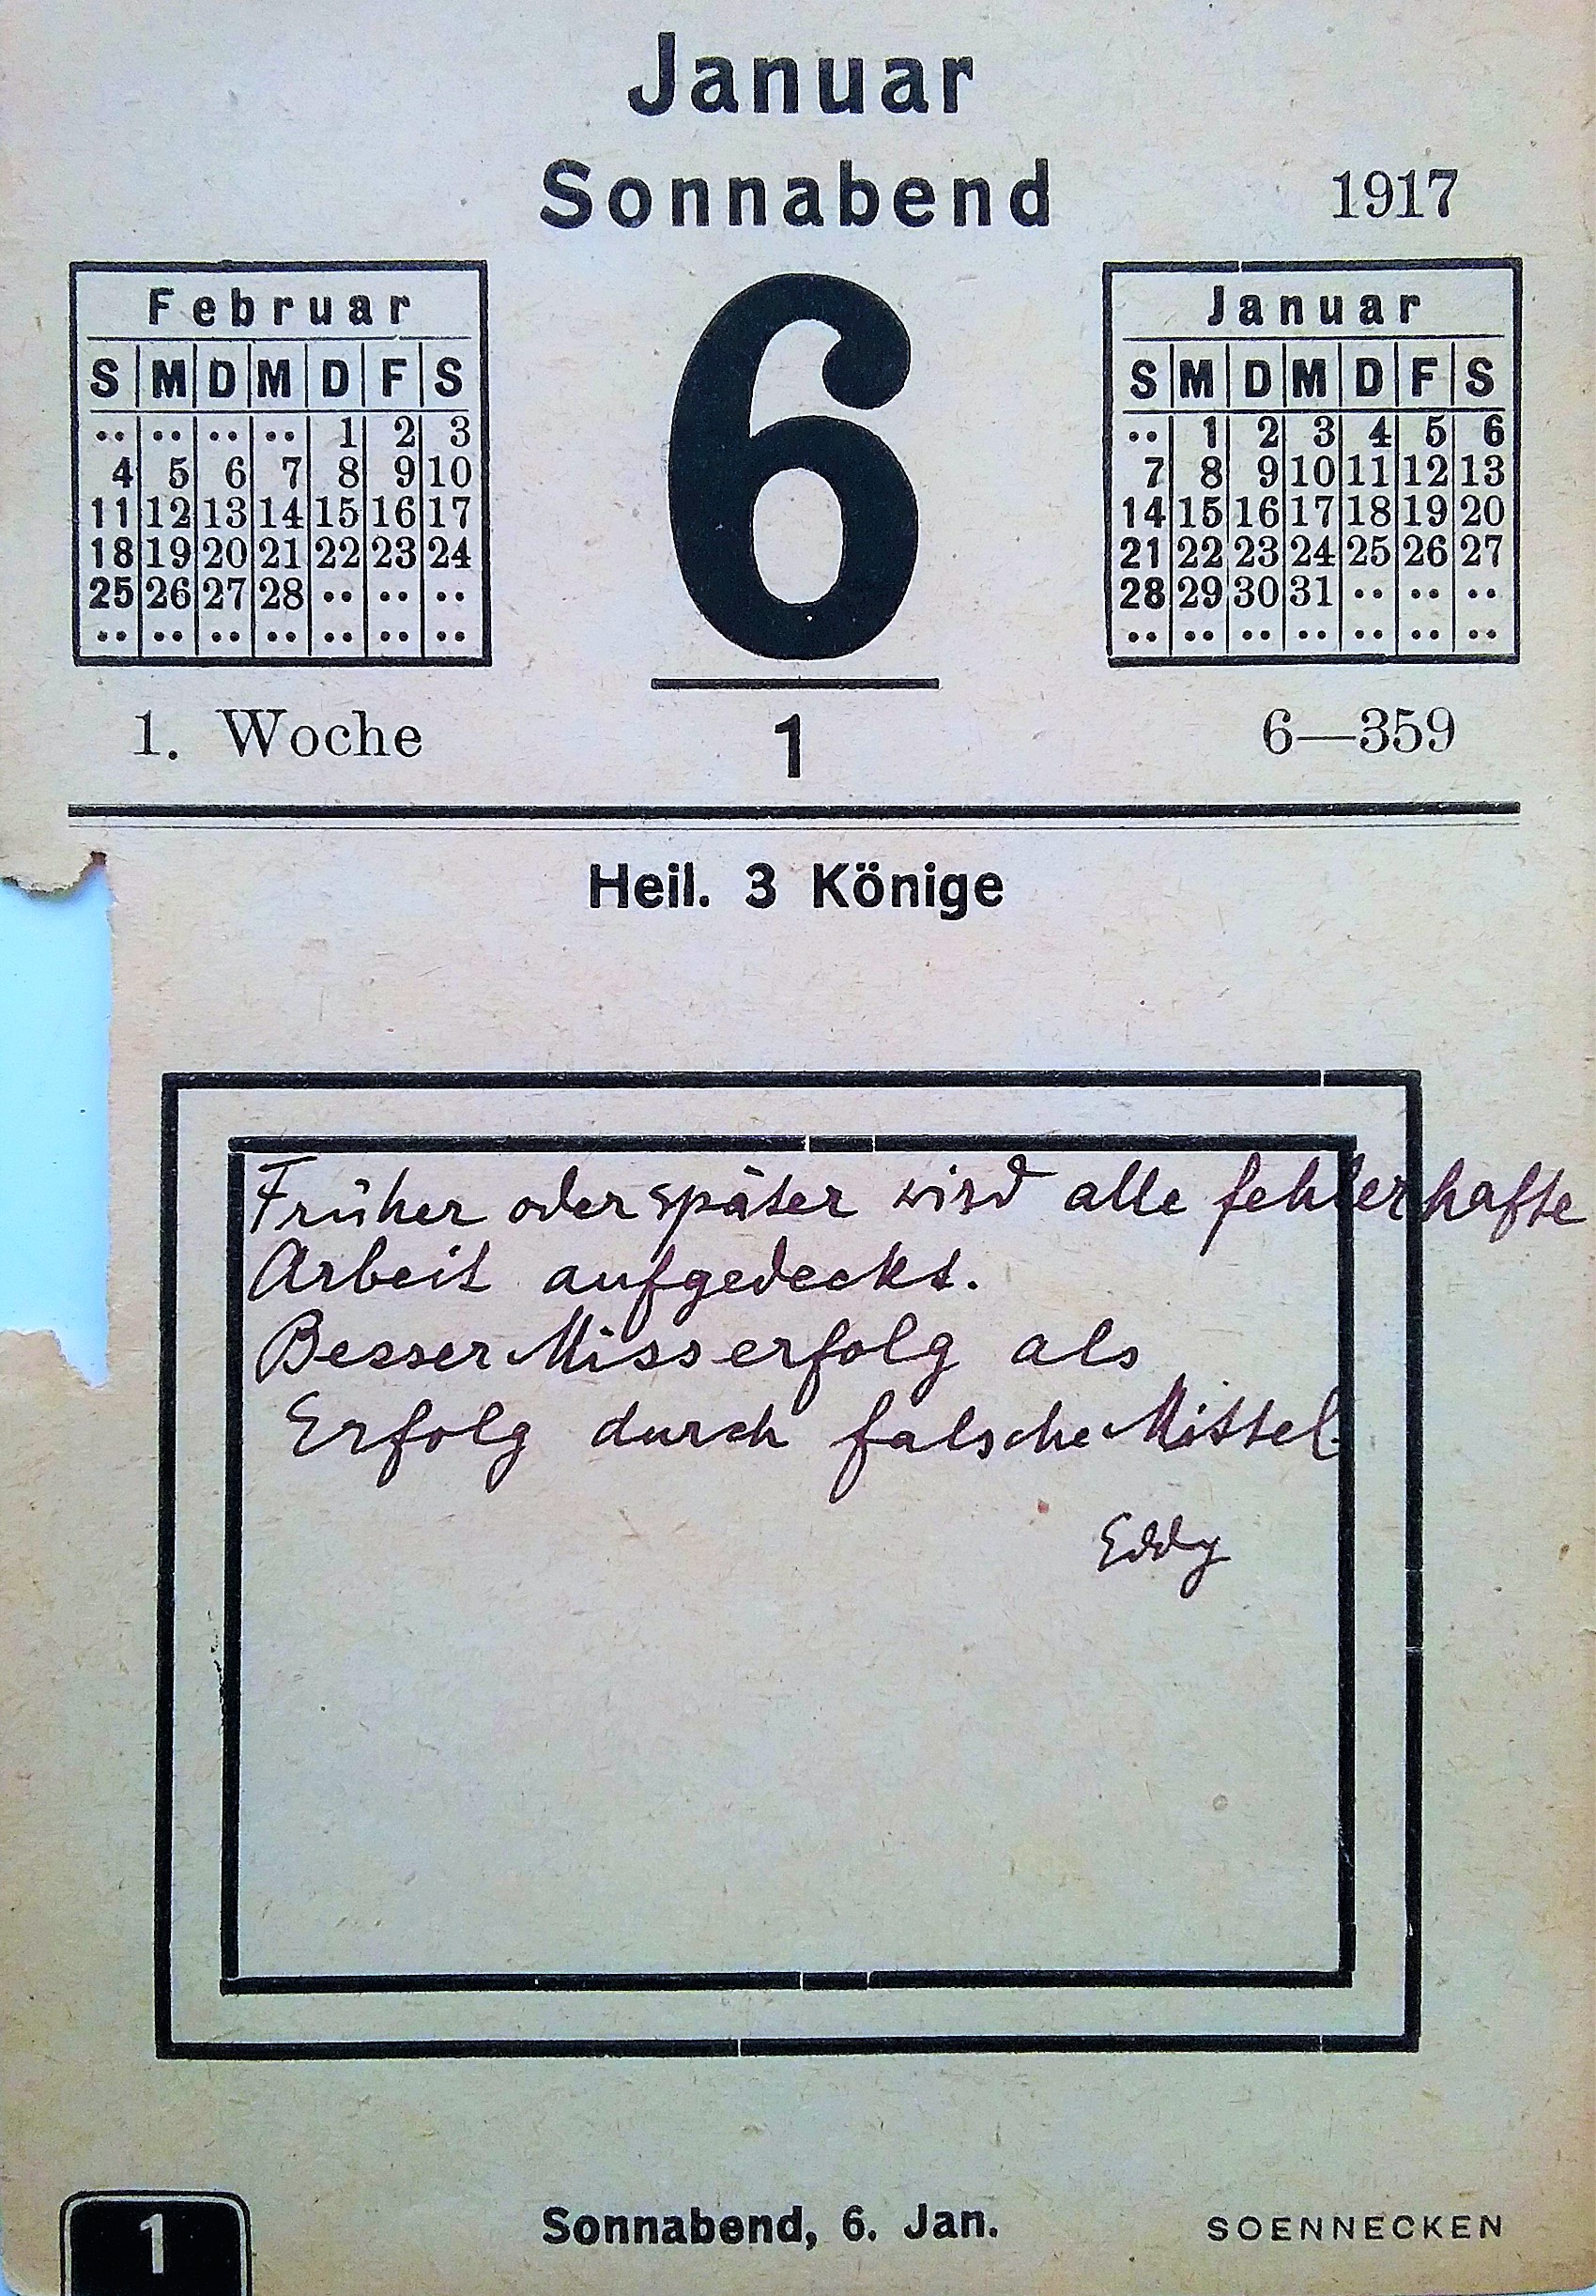 Januar
Sonnabend
1917
Februar
S M D M D F S
.. .. .. .. 1 2 3
4 5 6 7 8 9 10
11 12 13 14 15 16 17
18 19 20 21 22 23 24
25 26 27 28 .. .. ..
.. .. .. .. .. .. ..
6
Januar
S M D M D F S
.. 1 2 3 4 5 6
7 8 9 10 11 12 13
14 15 16 17 18 19 20
21 22 23 24 25 26 27
28 29 30 31 .. .. ..
.. .. .. .. .. .. ..
1. Woche
1
6—359
Heil. 3 Könige
Früher oder später wird alle fehlerhafte
Arbeit aufgedeckt.
Besser Misserfolg als
Erfolg durch falsche Mittel.
Eddy
1
Sonnabend, 6. Jan.
SOENNECKEN